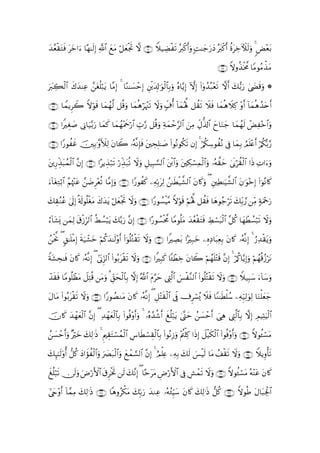 بَعْضٍ ۚ وَلَلْآخِرَةُ أَكْبَرُ دَرَجَاتٍ وَأَكْبَرُ تَفْضِيلًا ﴿٢١﴾ لَا تَجْعَلْ مَعَ اللَّهِ إِلَٰهًا آخَرَ فَتَقْعُدَ
مَذْمُومًا مَخْذُولًا ﴿٢٢﴾
* وَقَضَىٰ رَبُّكَ أَلَّا تَعْبُدُوا إِلَّا إِيَّاهُ وَبِالْوَالِدَيْنِ إِحْسَانًا ۚ إِمَّا يَبْلُغَنَّ عِنْدَكَ الْكِبَرَ
أَحَدُهُمَا أَوْ كِلَاهُمَا فَلَا تَقُلْ لَهُمَا أُفٍّ وَلَا تَنْهَرْهُمَا وَقُلْ لَهُمَا قَوْلًا كَرِيمًا ﴿٢٣﴾
وَاخْفِضْ لَهُمَا جَنَاحَ الذُّلِّ مِنَ الرَّحْمَةِ وَقُلْ رَبِّ ارْحَمْهُمَا كَمَا رَبَّيَانِي صَغِيرًا ﴿٢٤﴾
رَبُّكُمْ أَعْلَمُ بِمَا فِي نُفُوسِكُمْ ۚ إِنْ تَكُونُوا صَالِحِينَ فَإِنَّهُ كَانَ لِلْأَوَّابِينَ غَفُورًا ﴿٢٥﴾
وَآتِ ذَا الْقُرْبَىٰ حَقَّهُ وَالْمِسْكِينَ وَابْنَ السَّبِيلِ وَلَا تُبَذِّرْ تَبْذِيرًا ﴿٢٦﴾ إِنَّ الْمُبَذِّرِينَ
كَانُوا إِخْوَانَ الشَّيَاطِينِ ۖ وَكَانَ الشَّيْطَانُ لِرَبِّهِ كَفُورًا ﴿٢٧﴾ وَإِمَّا تُعْرِضَنَّ عَنْهُمُ ابْتِغَاءَ
رَحْمَةٍ مِنْ رَبِّكَ تَرْجُوهَا فَقُلْ لَهُمْ قَوْلًا مَيْسُورًا ﴿٢٨﴾ وَلَا تَجْعَلْ يَدَكَ مَغْلُولَةً إِلَىٰ عُنُقِكَ
وَلَا تَبْسُطْهَا كُلَّ الْبَسْطِ فَتَقْعُدَ مَلُومًا مَحْسُورًا ﴿٢٩﴾ إِنَّ رَبَّكَ يَبْسُطُ الرِّزْقَ لِمَنْ يَشَاءُ
وَيَقْدِرُ ۚ إِنَّهُ كَانَ بِعِبَادِهِ خَبِيرًا بَصِيرًا ﴿٣٠﴾ وَلَا تَقْتُلُوا أَوْلَادَكُمْ خَشْيَةَ إِمْلَاقٍ ۖ نَحْنُ
نَرْزُقُهُمْ وَإِيَّاكُمْ ۚ إِنَّ قَتْلَهُمْ كَانَ خِطْئًا كَبِيرًا ﴿٣١﴾ وَلَا تَقْرَبُوا الزِّنَىٰ ۖ إِنَّهُ كَانَ فَاحِشَةً
وَسَاءَ سَبِيلًا ﴿٣٢﴾ وَلَا تَقْتُلُوا النَّفْسَ الَّتِي حَرَّمَ اللَّهُ إِلَّا بِالْحَقِّ ۗ وَمَنْ قُتِلَ مَظْلُومًا فَقَدْ
جَعَلْنَا لِوَلِيِّهِ سُلْطَانًا فَلَا يُسْرِفْ فِي الْقَتْلِ ۖ إِنَّهُ كَانَ مَنْصُورًا ﴿٣٣﴾ وَلَا تَقْرَبُوا مَالَ
الْيَتِيمِ إِلَّا بِالَّتِي هِيَ أَحْسَنُ حَتَّىٰ يَبْلُغَ أَشُدَّهُ ۚ وَأَوْفُوا بِالْعَهْدِ ۖ إِنَّ الْعَهْدَ كَانَ
مَسْئُولًا ﴿٣٤﴾ وَأَوْفُوا الْكَيْلَ إِذَا كِلْتُمْ وَزِنُوا بِالْقِسْطَاسِ الْمُسْتَقِيمِ ۚ ذَٰلِكَ خَيْرٌ وَأَحْسَنُ
تَأْوِيلًا ﴿٣٥﴾ وَلَا تَقْفُ مَا لَيْسَ لَكَ بِهِ عِلْمٌ ۚ إِنَّ السَّمْعَ وَالْبَصَرَ وَالْفُؤَادَ كُلُّ أُولَٰئِكَ
كَانَ عَنْهُ مَسْئُولًا ﴿٣٦﴾ وَلَا تَمْشِ فِي الْأَرْضِ مَرَحًا ۖ إِنَّكَ لَنْ تَخْرِقَ الْأَرْضَ وَلَنْ تَبْلُغَ
الْجِبَالَ طُولًا ﴿٣٧﴾ كُلُّ ذَٰلِكَ كَانَ سَيِّئُهُ عِنْدَ رَبِّكَ مَكْرُوهًا ﴿٣٨﴾ ذَٰلِكَ مِمَّا أَوْحَىٰ